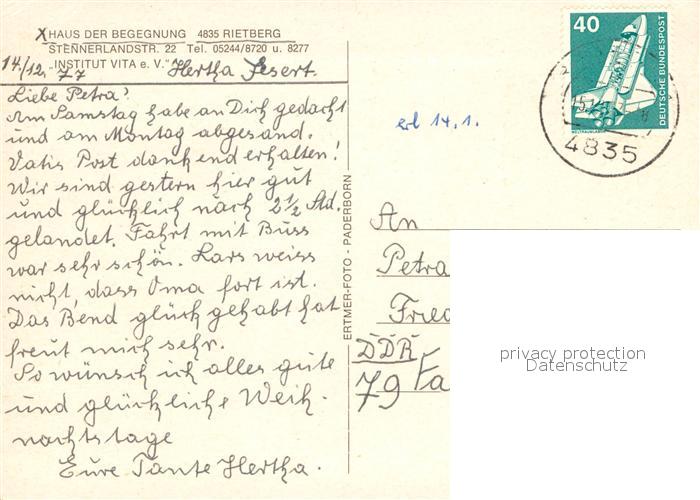 X HAUS DER BEGEGNUNG 4835 RIETBERG
STENNERLANDSTR. 22 Tel. 05244/8720 u. 8277
„INSTITUT VITA e. V."
14/12. 77 Hertha Jesert.
Liebe Petra!
Am Samstag habe an Dich gedacht
und am Montag abgesand.
Vatis Post dankend erhalten!
Wir sind gestern hier gut
und glücklich nach 2½ Std.
gelandet. Fahrt mit Buss
war sehr schön. Lars weiss
nicht, dass Oma fort ist.
Das Bend glück gehabt hat
freut mich sehr.
So wünsch ich alles gute
und glückliche Weih-
nachtstage
Eure Tante Hertha.
ERTMER-FOTO · PADERBORN
erl 14.1.
40
DEUTSCHE BUNDESPOST
WELTRAUMLABOR
4835
An
Petra
Fried
DDR
79 Fa
privacy protection
Datenschutz